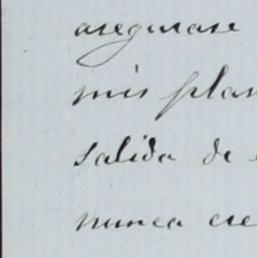 asegurase
mis plan
salida de
nunca cre